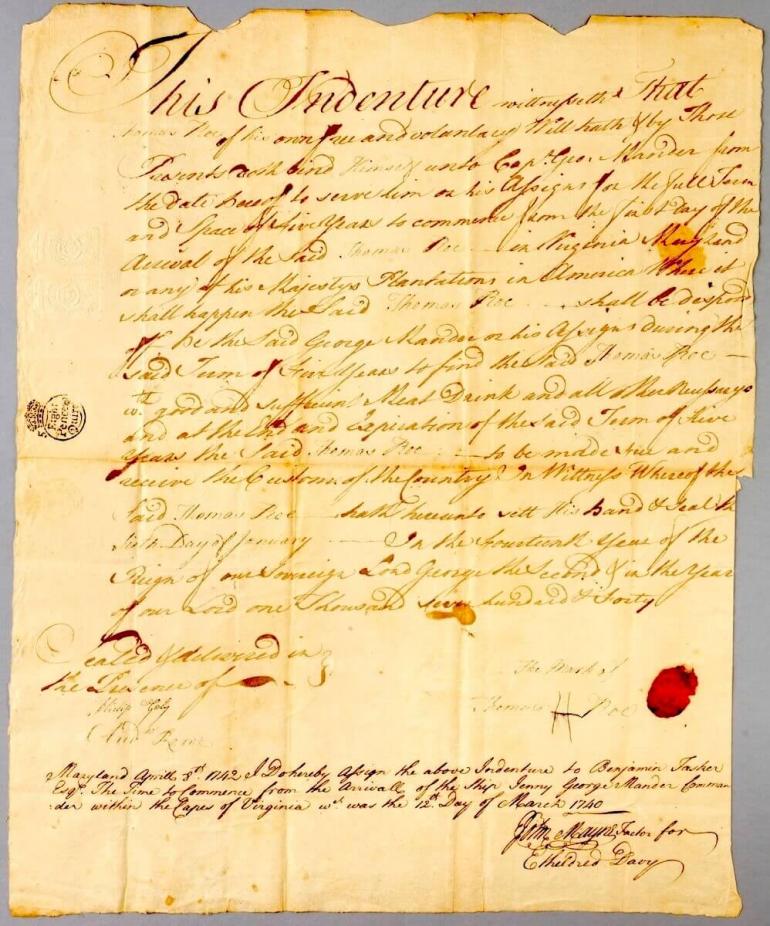 This Indenture witnesseth That
Thomas Roe of his own free and voluntary Will hath & by These
Presents doth bind Himself unto Capt. Geor: Mander from
the date hereof to serve him or his Assigns for the full Term
and Space of Five Years to commence from the first Day of the
Arrival of the Said Thomas Roe in Virginia Maryland
or any of his Majestys Plantations in America Where it
shall happen the Said Thomas Roe shall be disposd
Of he the Said George Mander or his Assigns during the
said Term of Five Years to find the said Thomas Roe
wth. good and sufficient Meat Drink and all other Necessarys
and at the End and Expiration of the said Term of Five
Years the Said Thomas Roe to be made free and
receive the Custom of the Country In Witness Whereof the
Said Thomas Roe hath hereunto sett His Hand & Seal th
Sixth Day of January In the Fourteenth Year of the
Reign of our Sovereign Lord George the Second & in the Year
of our Lord one Thousand seven hundred & Forty
Sealed & delivered in
the Presence of
Philip
The Mark of
Thomas H Roe
Eight
Pence pr
Quire
Maryland Aprill 3d. 1742 I Do hereby Assign the above Indenture to Benjamin Tasker
Esqr. The Time to Commence from the Arrivall of the Ship Jenny George Mander Comman
der within the Capes of Virginia wch. was the 12th Day of March 1740
John Mayne Factor for
Etheldred Davy